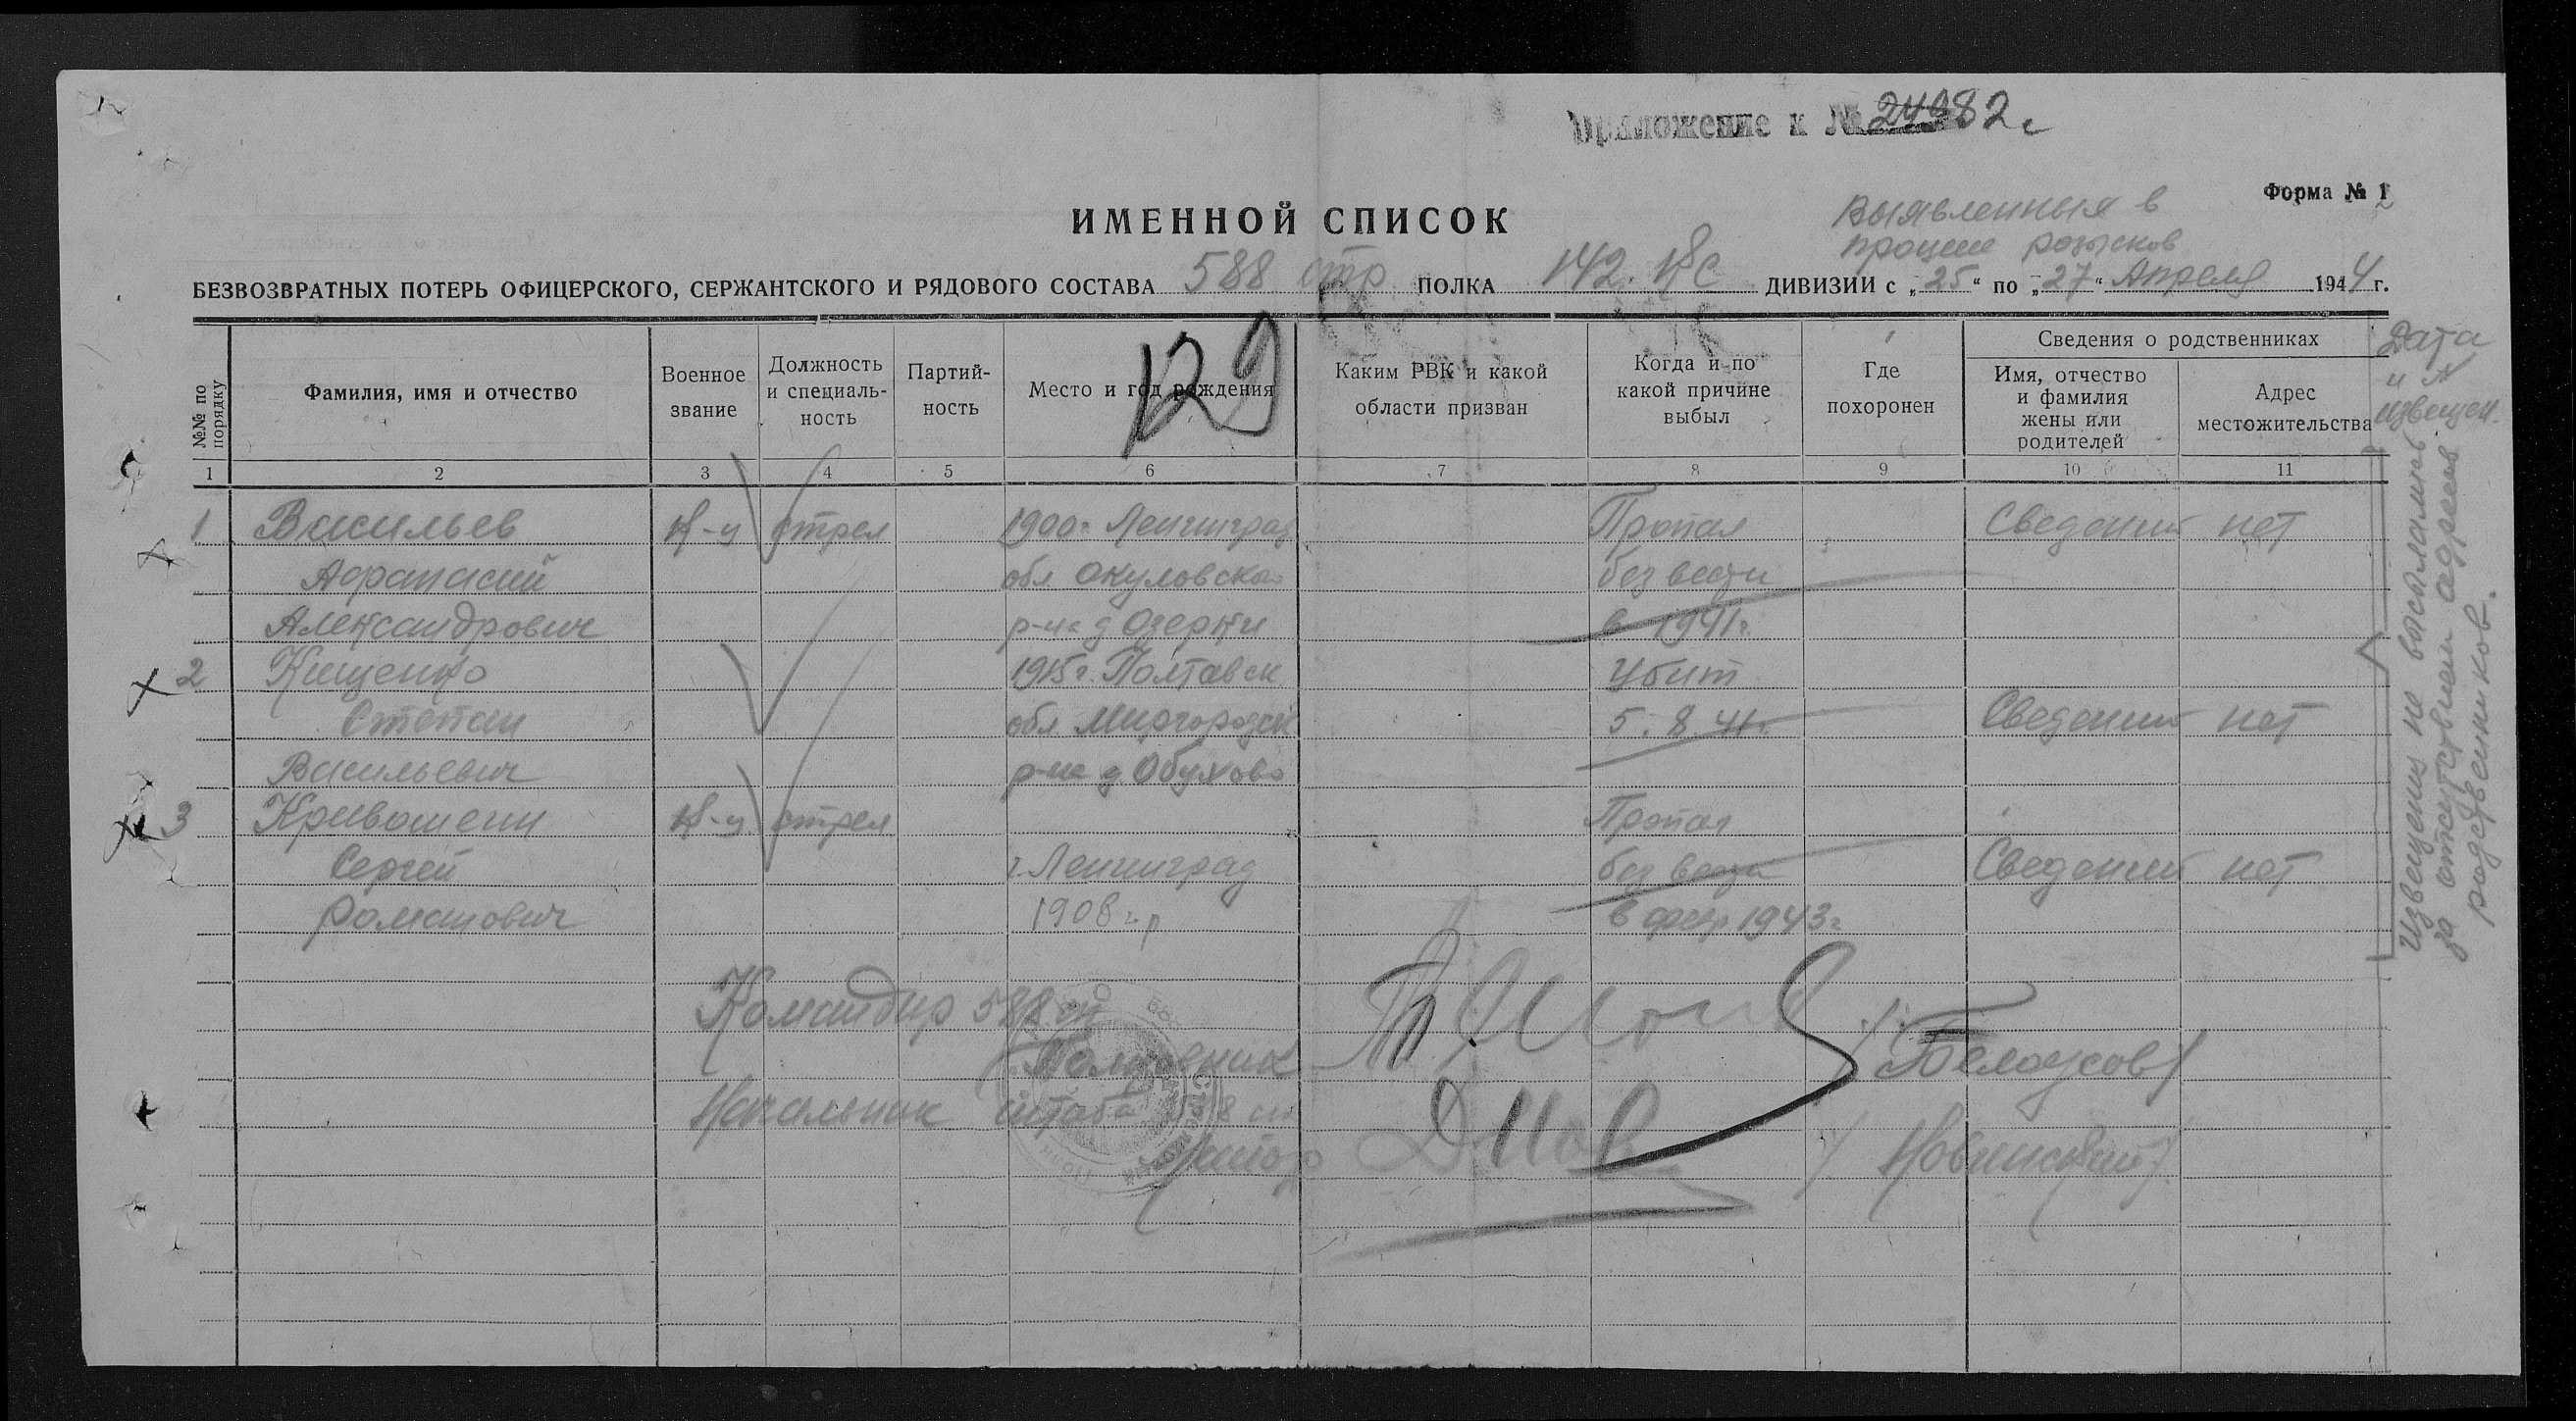 Приложение к № 24982с
Форма № 1
ИМЕННОЙ СПИСОК
Выявленный в
процессе розысков
БЕЗВОЗВРАТНЫХ ПОТЕРЬ ОФИЦЕРСКОГО, СЕРЖАНТСКОГО И РЯДОВОГО СОСТАВА 588 стр ПОЛКА 142 ДИВИЗИИ с „25“ по „27“ Апреля 1944 г.
129
№№ по порядку
Фамилия, имя и отчество
Военное звание
Должность и специаль-ность
Партий-ность
Место и год рождения
Каким РВК и какой области призван
Когда и по какой причине выбыл
Где похоронен
Сведения о родственниках
Имя, отчество и фамилия жены или родителей
Адрес местожительства
Дата и № извещен.
1 2 3 4 5 6 7 8 9 10 11
1 Васильев кр-ц стрел 1900г. Ленинград Пропал Сведений нет
Афанасий обл. Окуловского без вести
Александрович р-на д Озерки в 1941г.
2 Кищенко 1915г. Полтавск Убит
Степан обл. Миргородск 5.8.41г. Сведений нет
Васильевич р-на д. Обухово
3 Кривошеин кр-ц стрел Пропал
Сергей г. Ленинград без вести Сведений нет
Романович 1908 г.р в февр 1943г
Извещения не высылались
за отсутствием адресов
родственников.
Командир 588 сп
Полковник /Белоусов/
Начальник штаба 588 сп
Майор /Новинский/